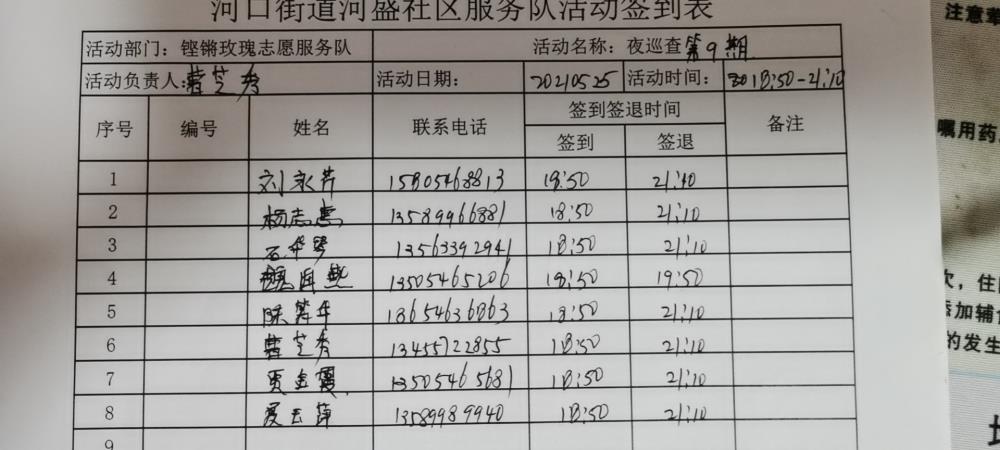 河口街道河盛社区服务队活动签到表
活动部门：铿锵玫瑰志愿服务队 活动名称：夜巡查第9期
活动负责人：曹芝秀 活动日期： 20210525 活动时间： 18:50-21:10
序号 编号 姓名 联系电话 签到签退时间 备注
签到 签退
1 刘永芹 15805468813 18:50 21:10
2 杨志惠 13589966881 18:50 21:10
3 石华琴 13563392941 18:50 21:10
4 13505465206 18:50 19:50
5 18654636863 18:50 21:10
6 曹芝秀 13455722855 18:50 21:10
7 贾金 13505465681 18:50 21:10
8 13589989940 18:50 21:10
9
注意
嘱用药
次，住
添加辅
的发生